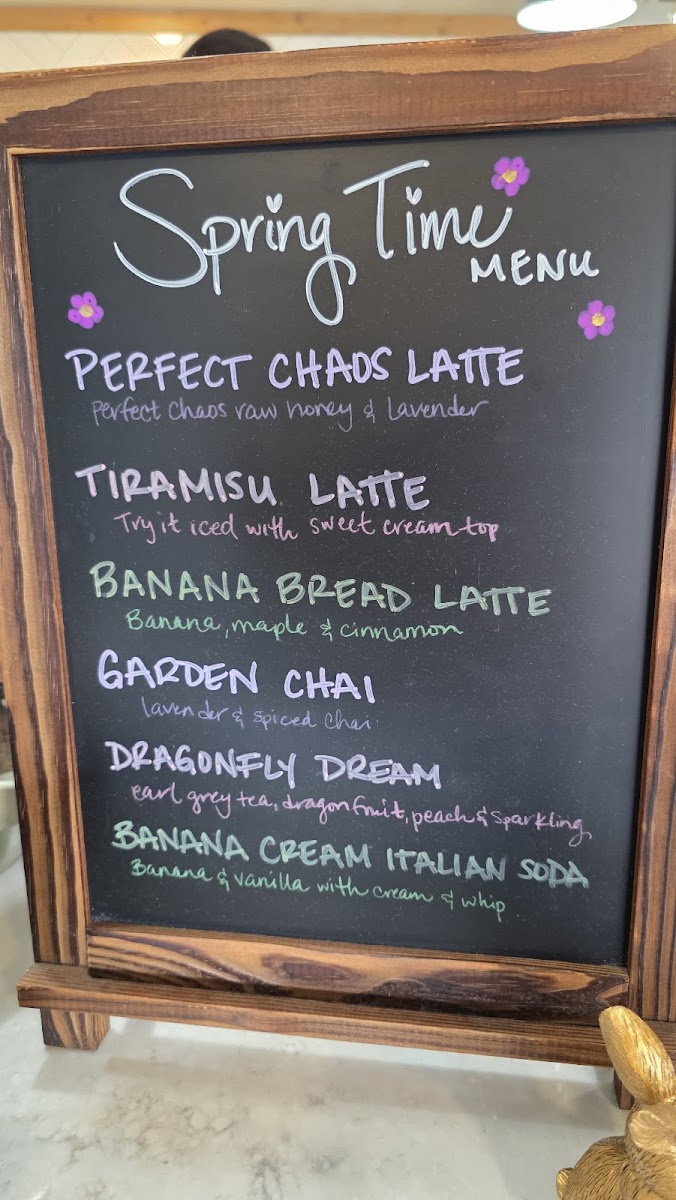 Spring Time
MENU
PERFECT CHAOS LATTE
perfect chaos raw honey & lavender
TIRAMISU LATTE
Try it iced with sweet cream top
BANANA BREAD LATTE
Banana, maple & cinnamon
GARDEN CHAI
lavender & spiced chai
DRAGONFLY DREAM
earl grey tea, dragonfruit, peach & sparkling
BANANA CREAM ITALIAN SODA
Banana & vanilla with cream & whip